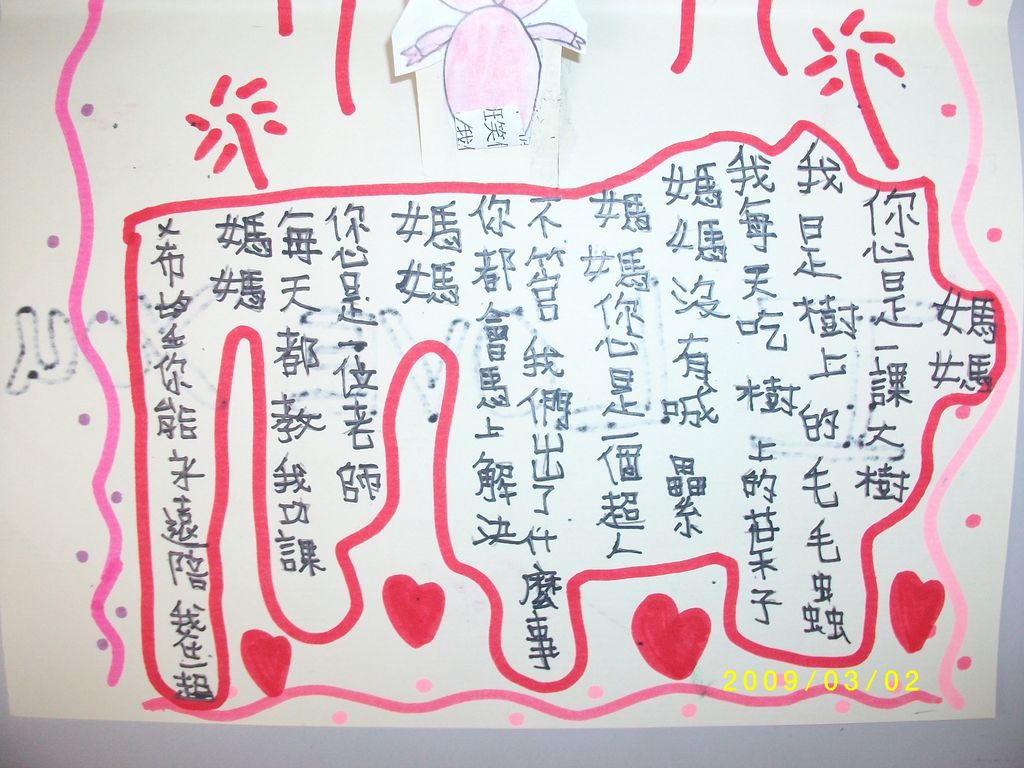 媽媽
您是一課大樹
我是樹上的毛毛蟲
我每天吃樹上的葉子
媽媽沒有喊纍
媽媽您是一個超人
不管我們出了什麼事
你都會馬上解決
媽媽
您是一位老師
每天都教我功課
媽媽
希望你能永遠陪我在一起
2009/03/02